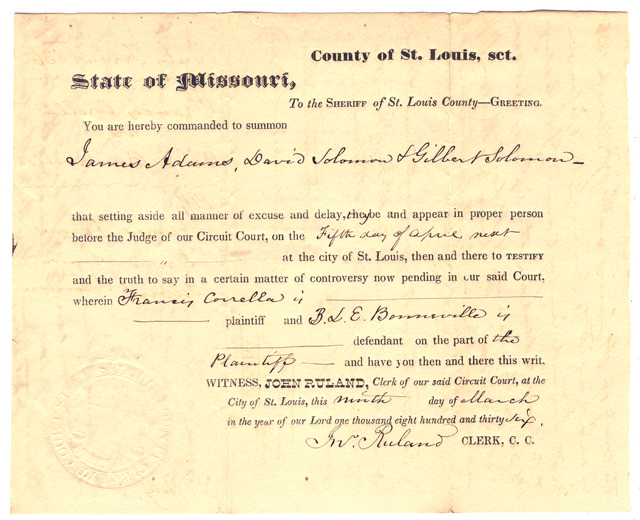 County of St. Louis, sct.
State of Missouri,
To the SHERIFF of St. Louis County—GREETING.
You are hereby commanded to summon
James Adams, David Solomon & Gilbert Solomon —
that setting aside all manner of excuse and delay, they be and appear in proper person
before the Judge of our Circuit Court, on the Fifth day of April next
" at the city of St. Louis, then and there to TESTIFY
and the truth to say in a certain matter of controversy now pending in our said Court,
wherein Francis Corrella is
plaintiff and B. L. E. Bonneville is
defendant on the part of the
Plaintiff — and have you then and there this writ.
WITNESS, JOHN RULAND, Clerk of our said Circuit Court, at the
City of St. Louis, this ninth day of March
in the year of our Lord one thousand eight hundred and thirty six.
Jno. Ruland CLERK, C. C.